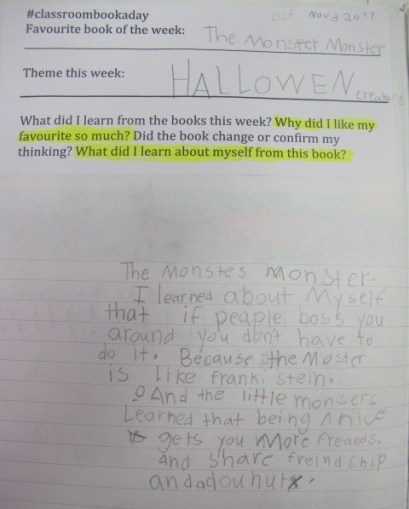 #classroombookaday
Oct Nov 3 2017
Favourite book of the week: The Monster Monster
Theme this week: HALLOWEN creaturs
What did I learn from the books this week? Why did I like my
favourite so much? Did the book change or confirm my
thinking? What did I learn about myself from this book?
The Monstes Monster.
I learned about Myself
that if peaple boss you
around you don't have to
do it. Because the Moster
is like franki stein.
And the little monsers
Learned that being nice
gets you More freands.
And share freindship